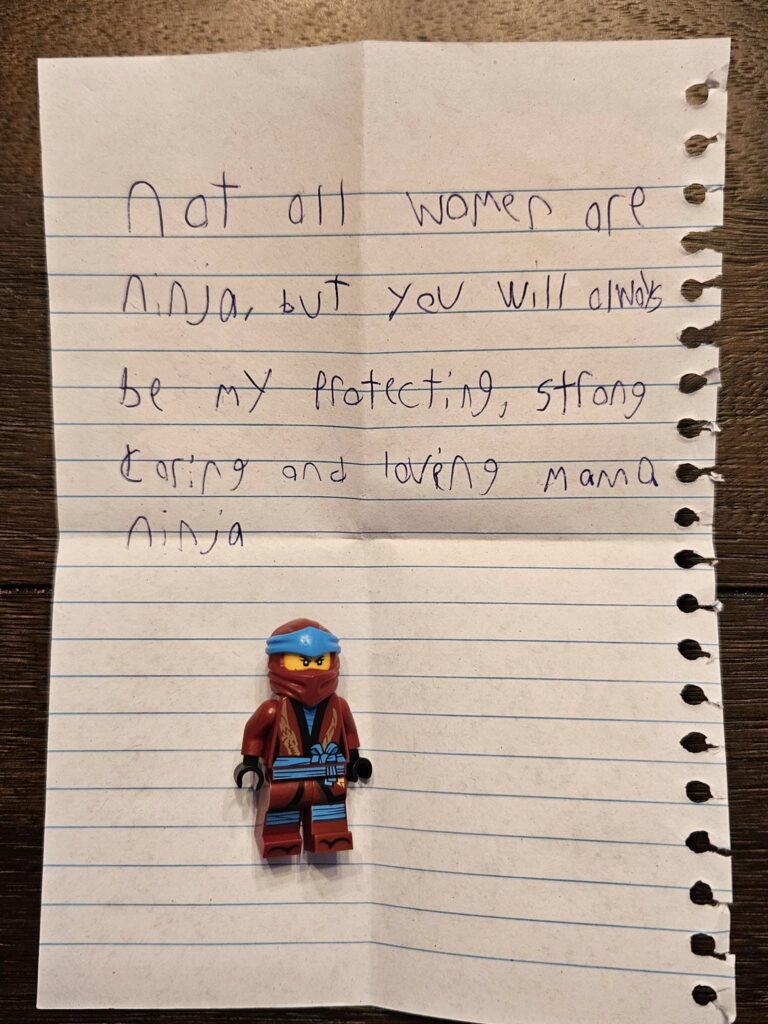 Not all women are
ninja, but you will always
be my protecting, strong
caring and loving mama
ninja